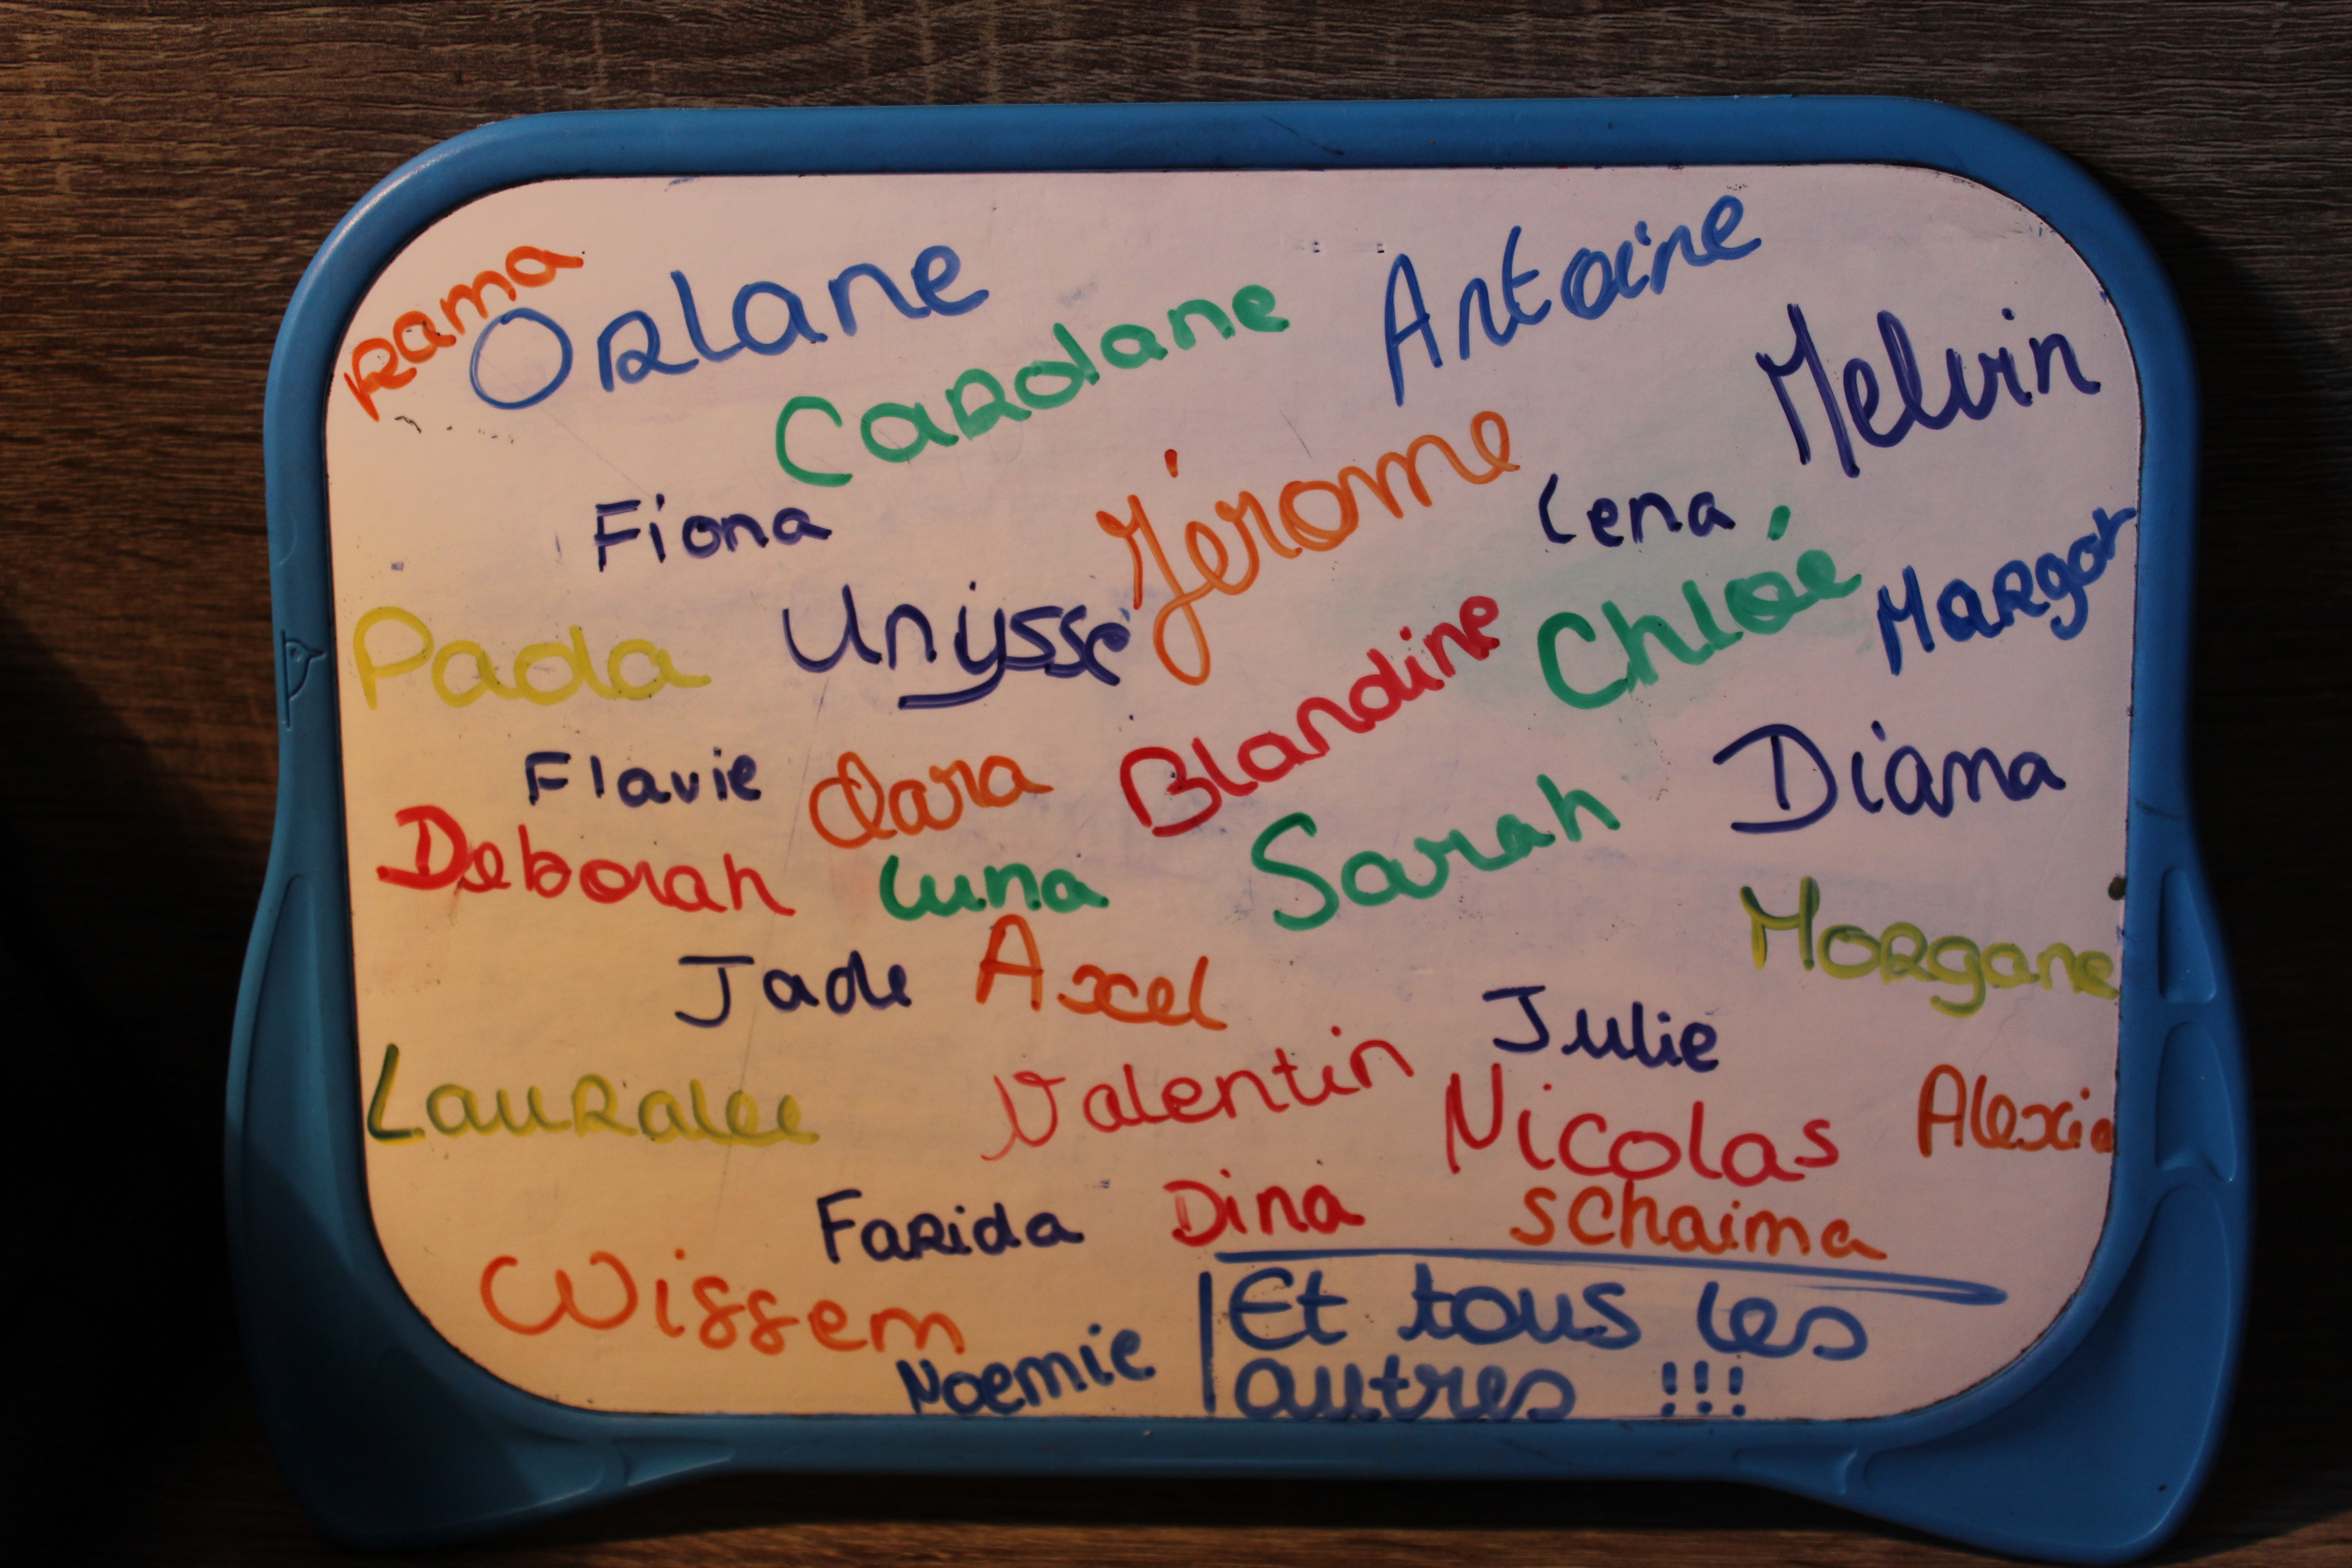 Rama
Orlane
Antoine
Carolane
Melvin
Fiona
Jérome
Lena
Paola
Unyssé
Chloé
Margot
Blandine
Flavie
Clara
Diana
Deborah
Luna
Sarah
Jade
Axel
Morgane
Julie
Lauralee
Valentin
Nicolas
Alexia
Farida
Dina
Schaima
Wissem
Noemie
Et tous les
autres !!!